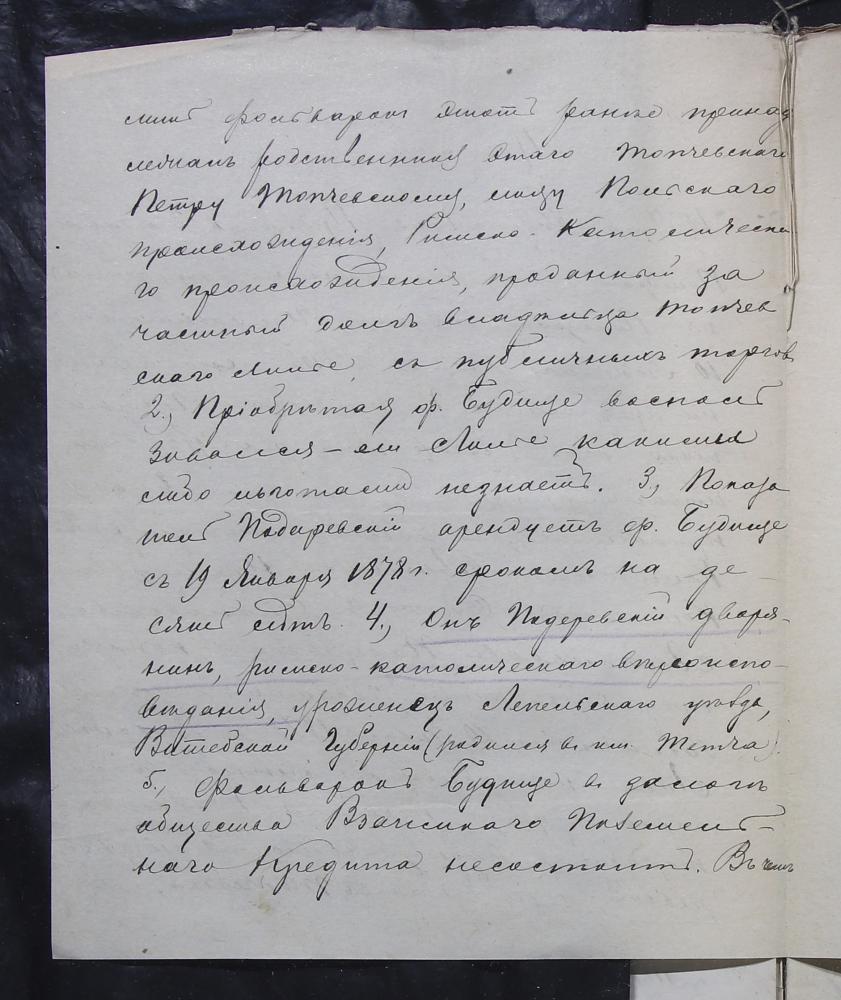 фольварокъ Этотъ ранѣе принад
лежалъ родственнику Этаго Топчевскаго
Петру Топчевскому, лицу Польскаго
происхожденія, Римско-Католическа
го происхожденія, проданный за
частный долгъ владѣльца Топчев
скаго съ публичныхъ торгов
2., Пріобрѣтая ф. Будище восполь
зовался-ли какими
либо льготами незнаетъ. 3., Показа
тель Подеревскій арендуетъ ф. Будище
съ 19 Января 1878 г. срокомъ на де-
сять лѣтъ. 4., Онъ Подеревскій дворя-
нинъ, римско-католическаго вѣроиспо-
вѣданія, уроженецъ Лепельскаго уѣзда,
Витебской Губерніи (родился въ им. Тетча).
5., Фольварокъ Будище въ залогѣ
общества Взаимнаго Поземель-
наго Кредита несостоитъ. Въ чемъ